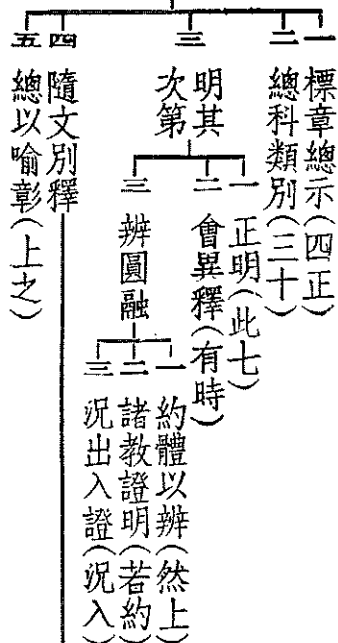 一 標章總示(四正)
二 總科類別(三十)
三 明其次第
一 正明(此七)
二 會異釋(有時)
三 辨圓融
一 約體以辨(然上)
二 諸教證明(若約)
三 況出入證(況入)
四 隨文別釋
五 總以喻彰(上之)